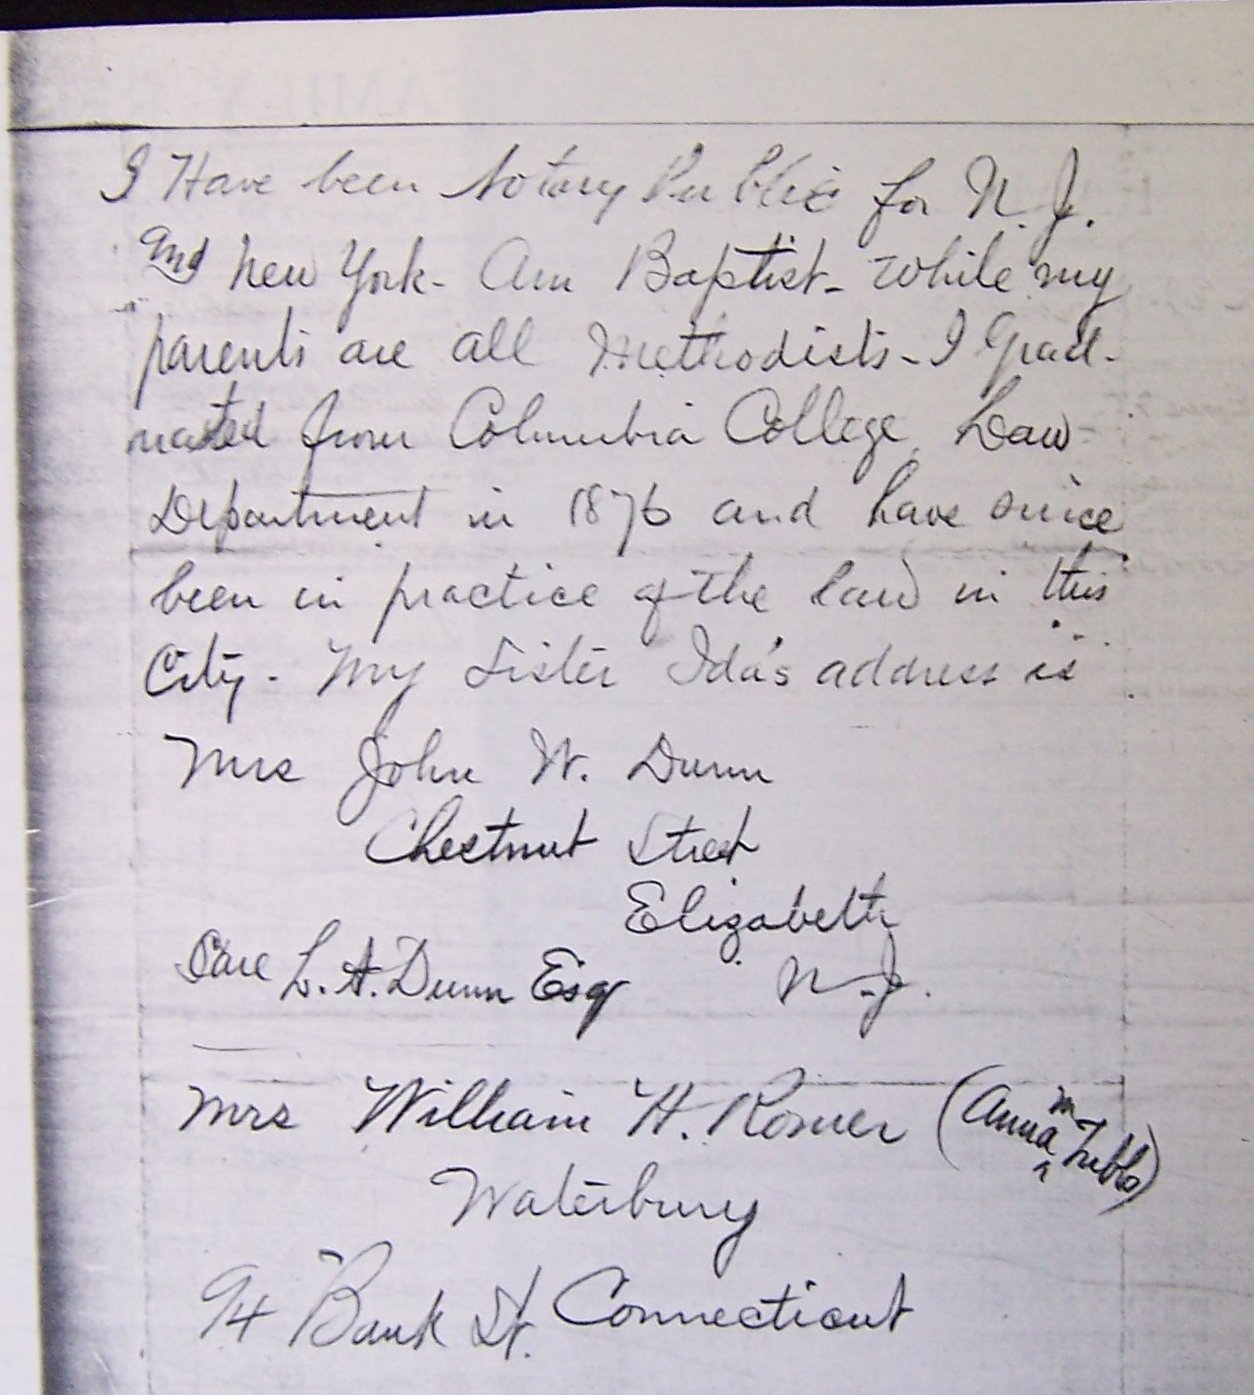 I Have been Notary Public for N. J.
and New York - Am Baptist - while my
parents are all Methodists - I Grad-
uated from Columbia College Law
Department in 1876 and have since
been in practice of the law in this
City. My Sister Ida's address is
Mrs John W. Dunn
Chestnut Street
Elizabeth
Care L. A. Dunn Esq N.J.
Mrs William H. Romer (Anna M Tubbs)
Waterbury
94 Bank St. Connecticut